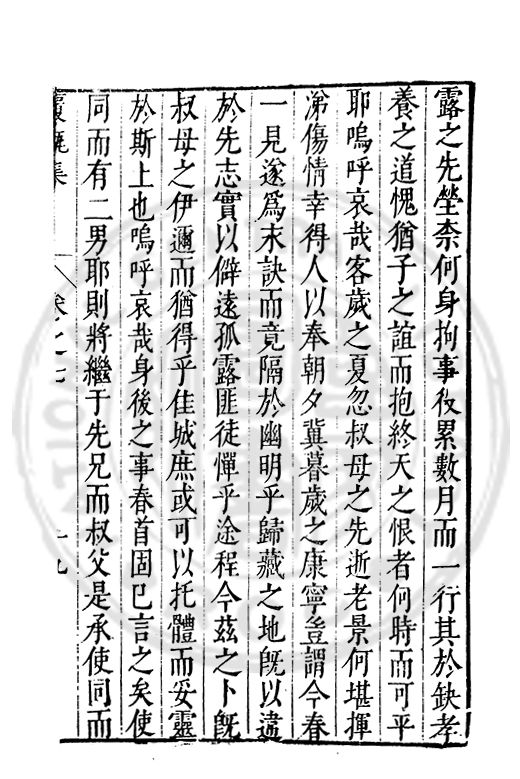 露之先塋柰何身拘事役累數月而一行其於缺孝
養之道愧猶子之誼而抱終天之恨者何時而可平
耶嗚呼哀哉客歲之夏忽叔母之先逝老景何堪揮
涕傷情幸得人以奉朝夕冀暮歲之康寧豈謂今春
一見遂爲末訣而竟隔於幽明乎歸藏之地旣以違
於先志實以僻遠孤露匪徒憚乎途程今茲之卜旣
叔母之伊邇而猶得乎佳城庶或可以托體而妥靈
於斯上也嗚呼哀哉身後之事春首固已言之矣使
同而有二男耶則將繼于先兄而叔父是承使同而
集 卷之七 十九